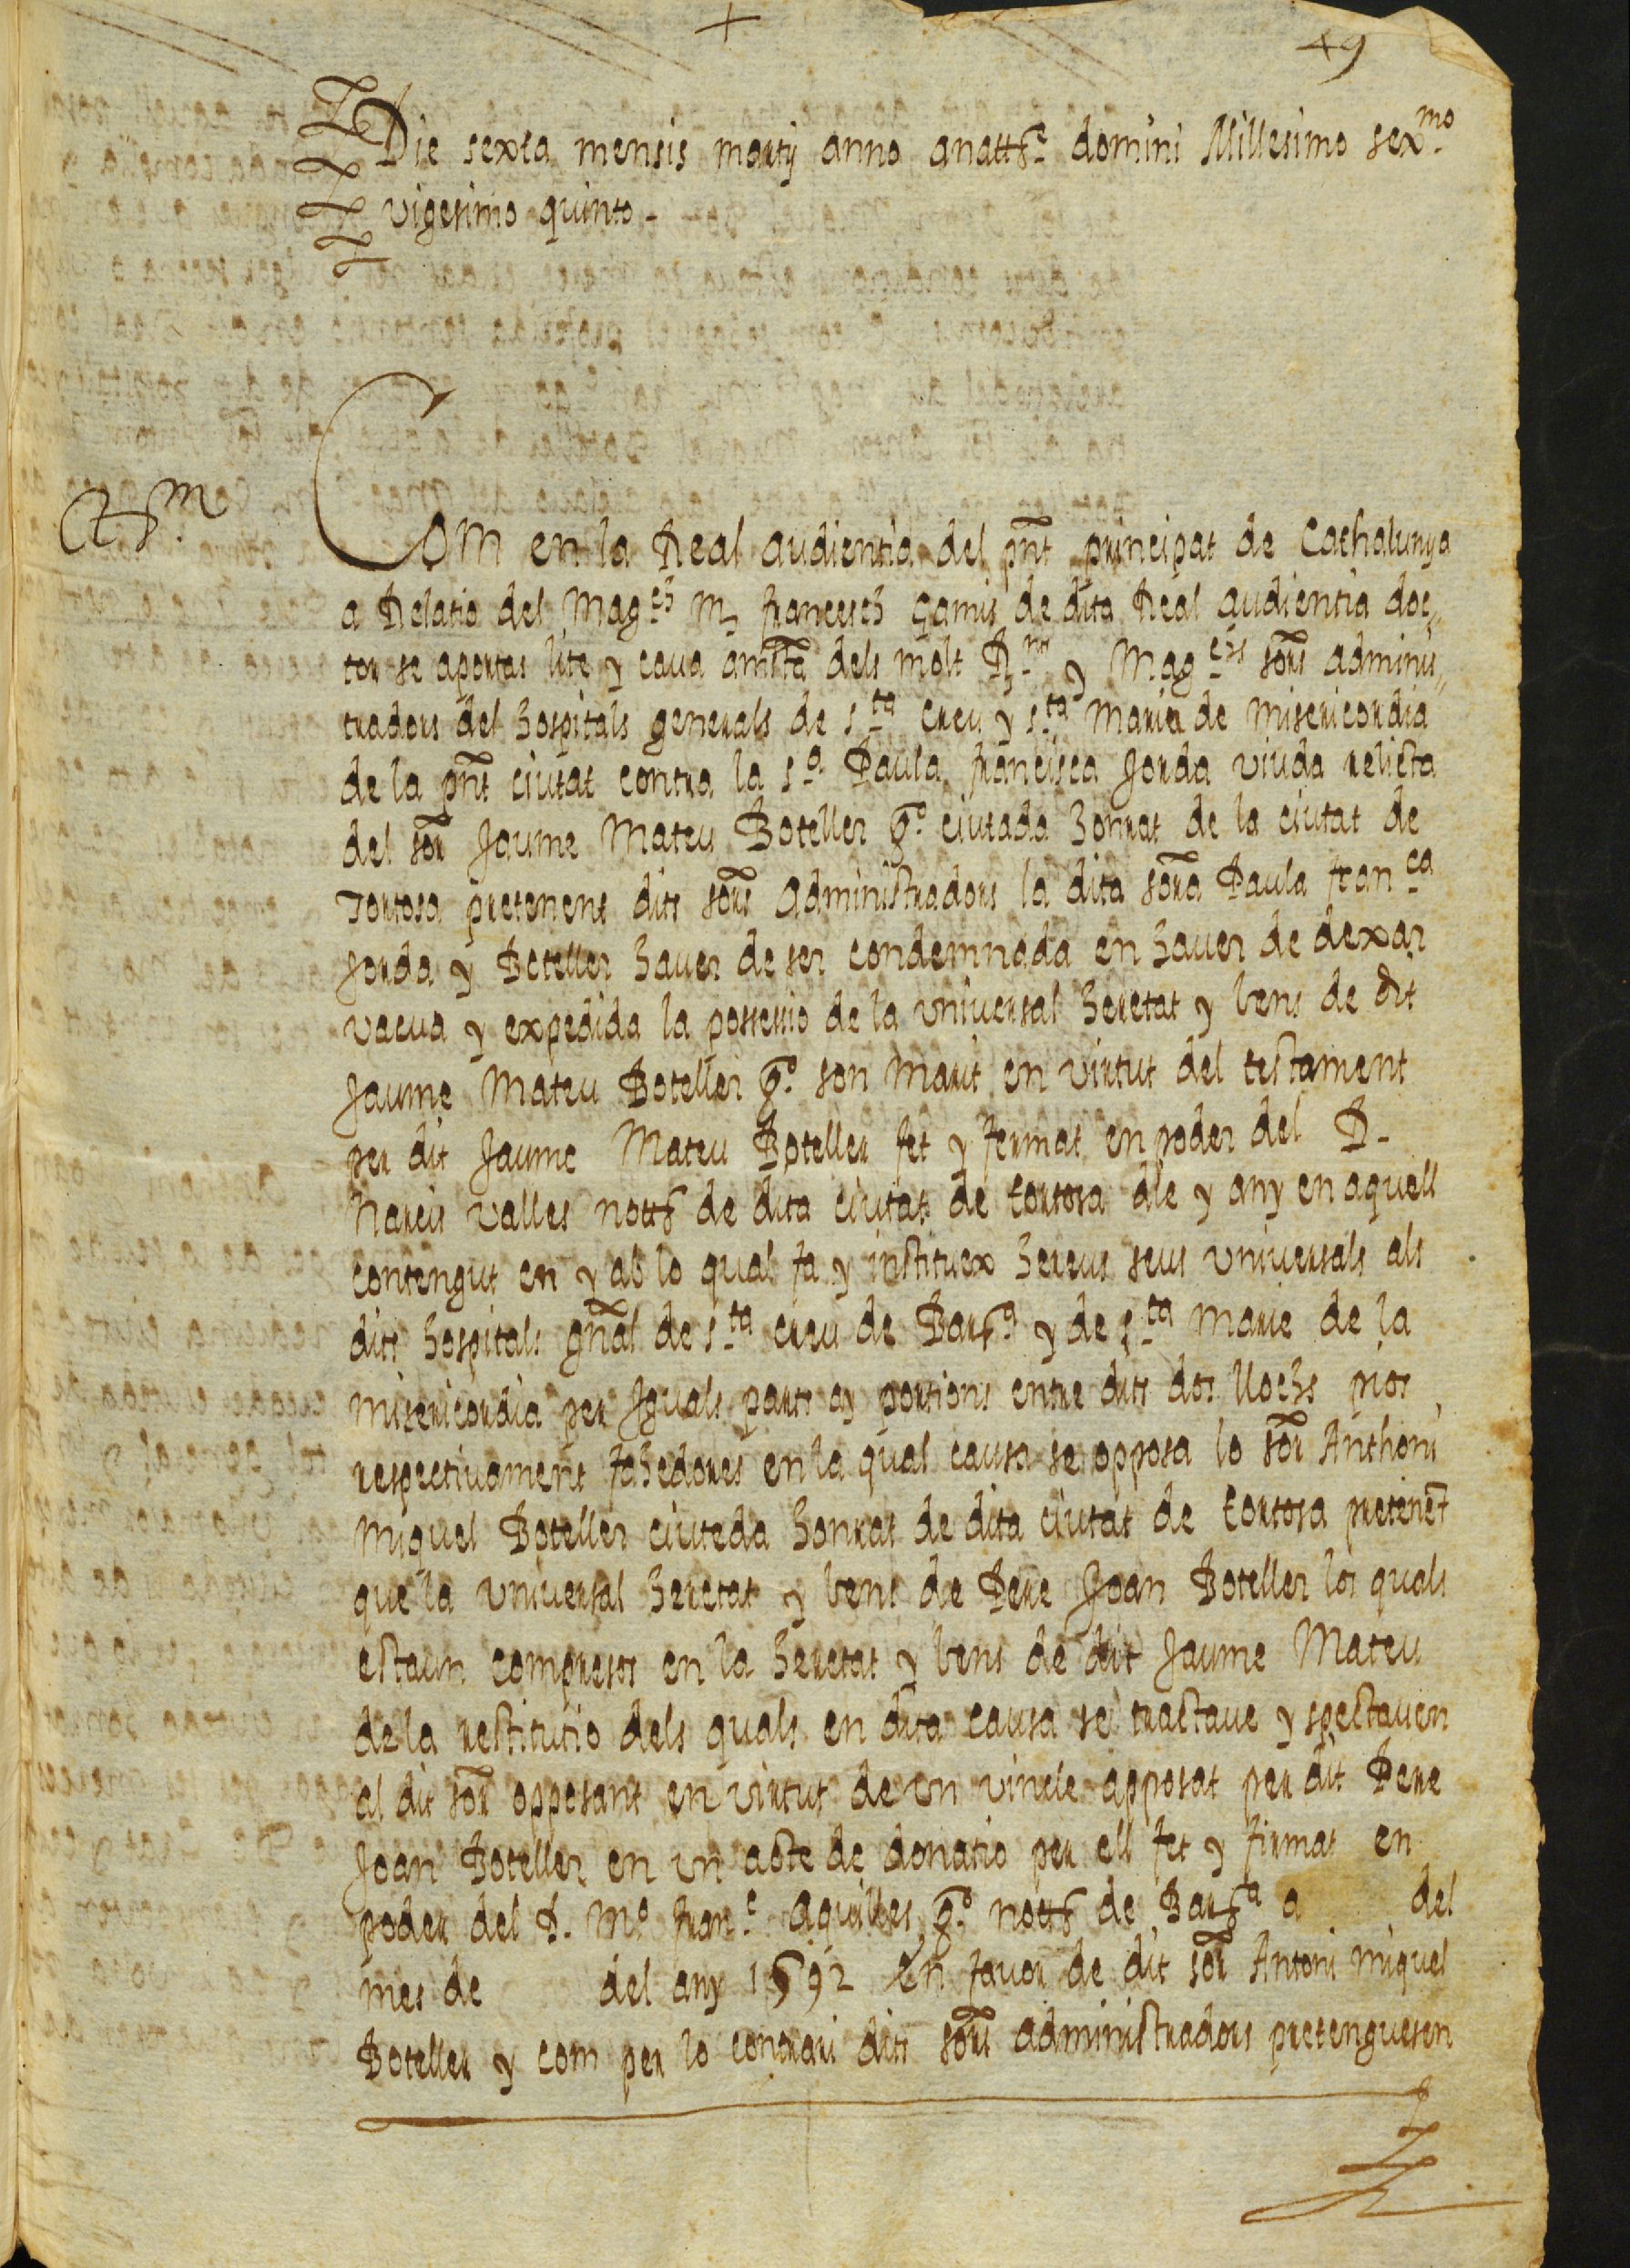 +
49
Die sexta mensis martij anno anattę domini Millesimo sex.mo
vigesimo quinto -
Com en la Real audientia del pñt principat de Cathalunya
a Relatio del Mag.ch m. francesch Gamis de dita Real audientia doc
tor se aportas lite y caua dels molt R.nt y Mag.chs sors adminis
tradors del hospitals generals de s.ta creu y s.ta Maria de misericordia
de la pñt ciutat contra la s.a Paula francisca Jorda viuda relicta
del sor Jaume Mateu Boteller q.o ciutada honrat de la ciutat de
Tortosa pretenent dits sors administradors la dita sora Paula fran.ca
Jorda y Boteller hauer de ser condemnada en hauer de dexar
vacua y expedida la possessio de la vniuersal heretat y bens de dit
Jaume Mateu Boteller q.o son marit en virtut del testament
per dit Jaume Mateu Boteller fet y fermat en poder del D-
Narcis Valles notts de dita ciutat de tortosa die y any en aquell
contengut en y ab lo qual fa y instituex hereus seus vniuersals als
dits hospitals gñal de s.ta creu de Barña y de s.ta Marie de la
misericordia per Iguals parts y portions entre dits dos llochs pios
respectiuament fahedores en la qual causa se opposa lo sor Anthoni
Miquel Boteller ciuteda honrat de dita ciutat de tortosa pretenẽt
que la vniuersal heretat y bens de Pere Joan Boteller los quals
estaun compresos en la heretat y bens de dit Jaume Mateu
de la restitutio dels quals en dita causa se tractaue y spectauen
al dit sor opposant en virtut de vn vincle apposat per dit Pere
Joan Boteller en vn acte de donatio per ell fet y firmat en
poder del D. M.o fran.c q.o notts de Barña a del
mes de del any 1592 en fauor de dit sor Antoni miquel
Boteller y com per lo contrari dits sors administradors pretenguesen